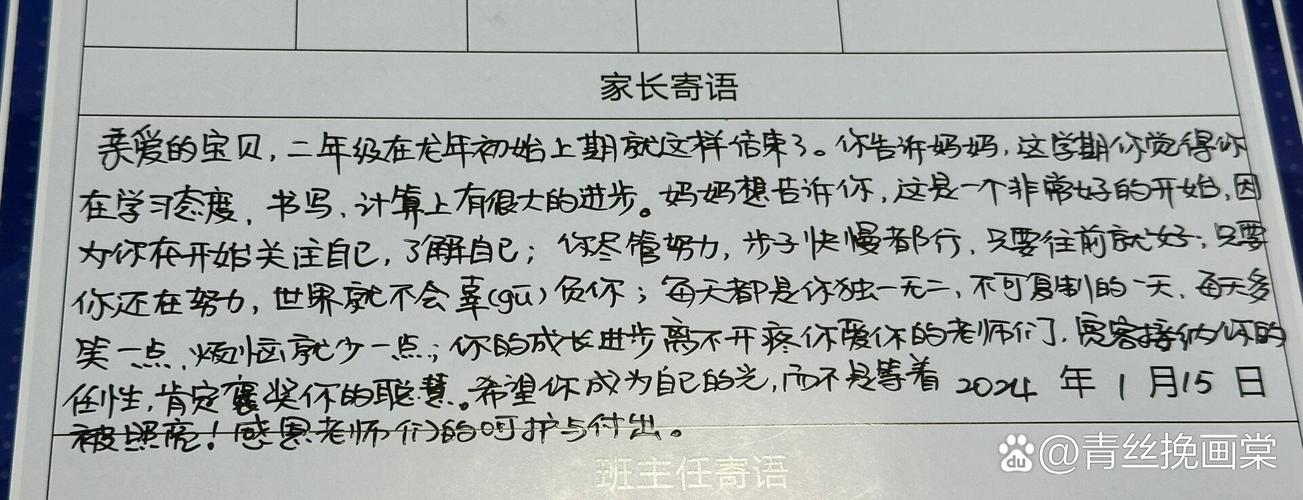 家长寄语
亲爱的宝贝，二年级在龙年初始上期就这样结束了。你告诉妈妈，这学期你觉得你
在学习态度、书写、计算上有很大的进步。妈妈想告诉你，这是一个非常好的开始，因
为你在开始关注自己，了解自己；你尽管努力，步子快慢都行，只要往前就好；只要
你还在努力，世界就不会辜(gū)负你；每天都是你独一无二、不可复制的一天，每天多
笑一点，烦恼就少一点；你的成长进步离不开疼你爱你的老师们，宽容接纳你的
任性，肯定褒奖你的聪慧。希望你成为自己的光，而不是等着 2024 年 1 月 15 日
被照亮！感恩老师们的呵护与付出。
班主任寄语
Bai du @青丝挽画棠